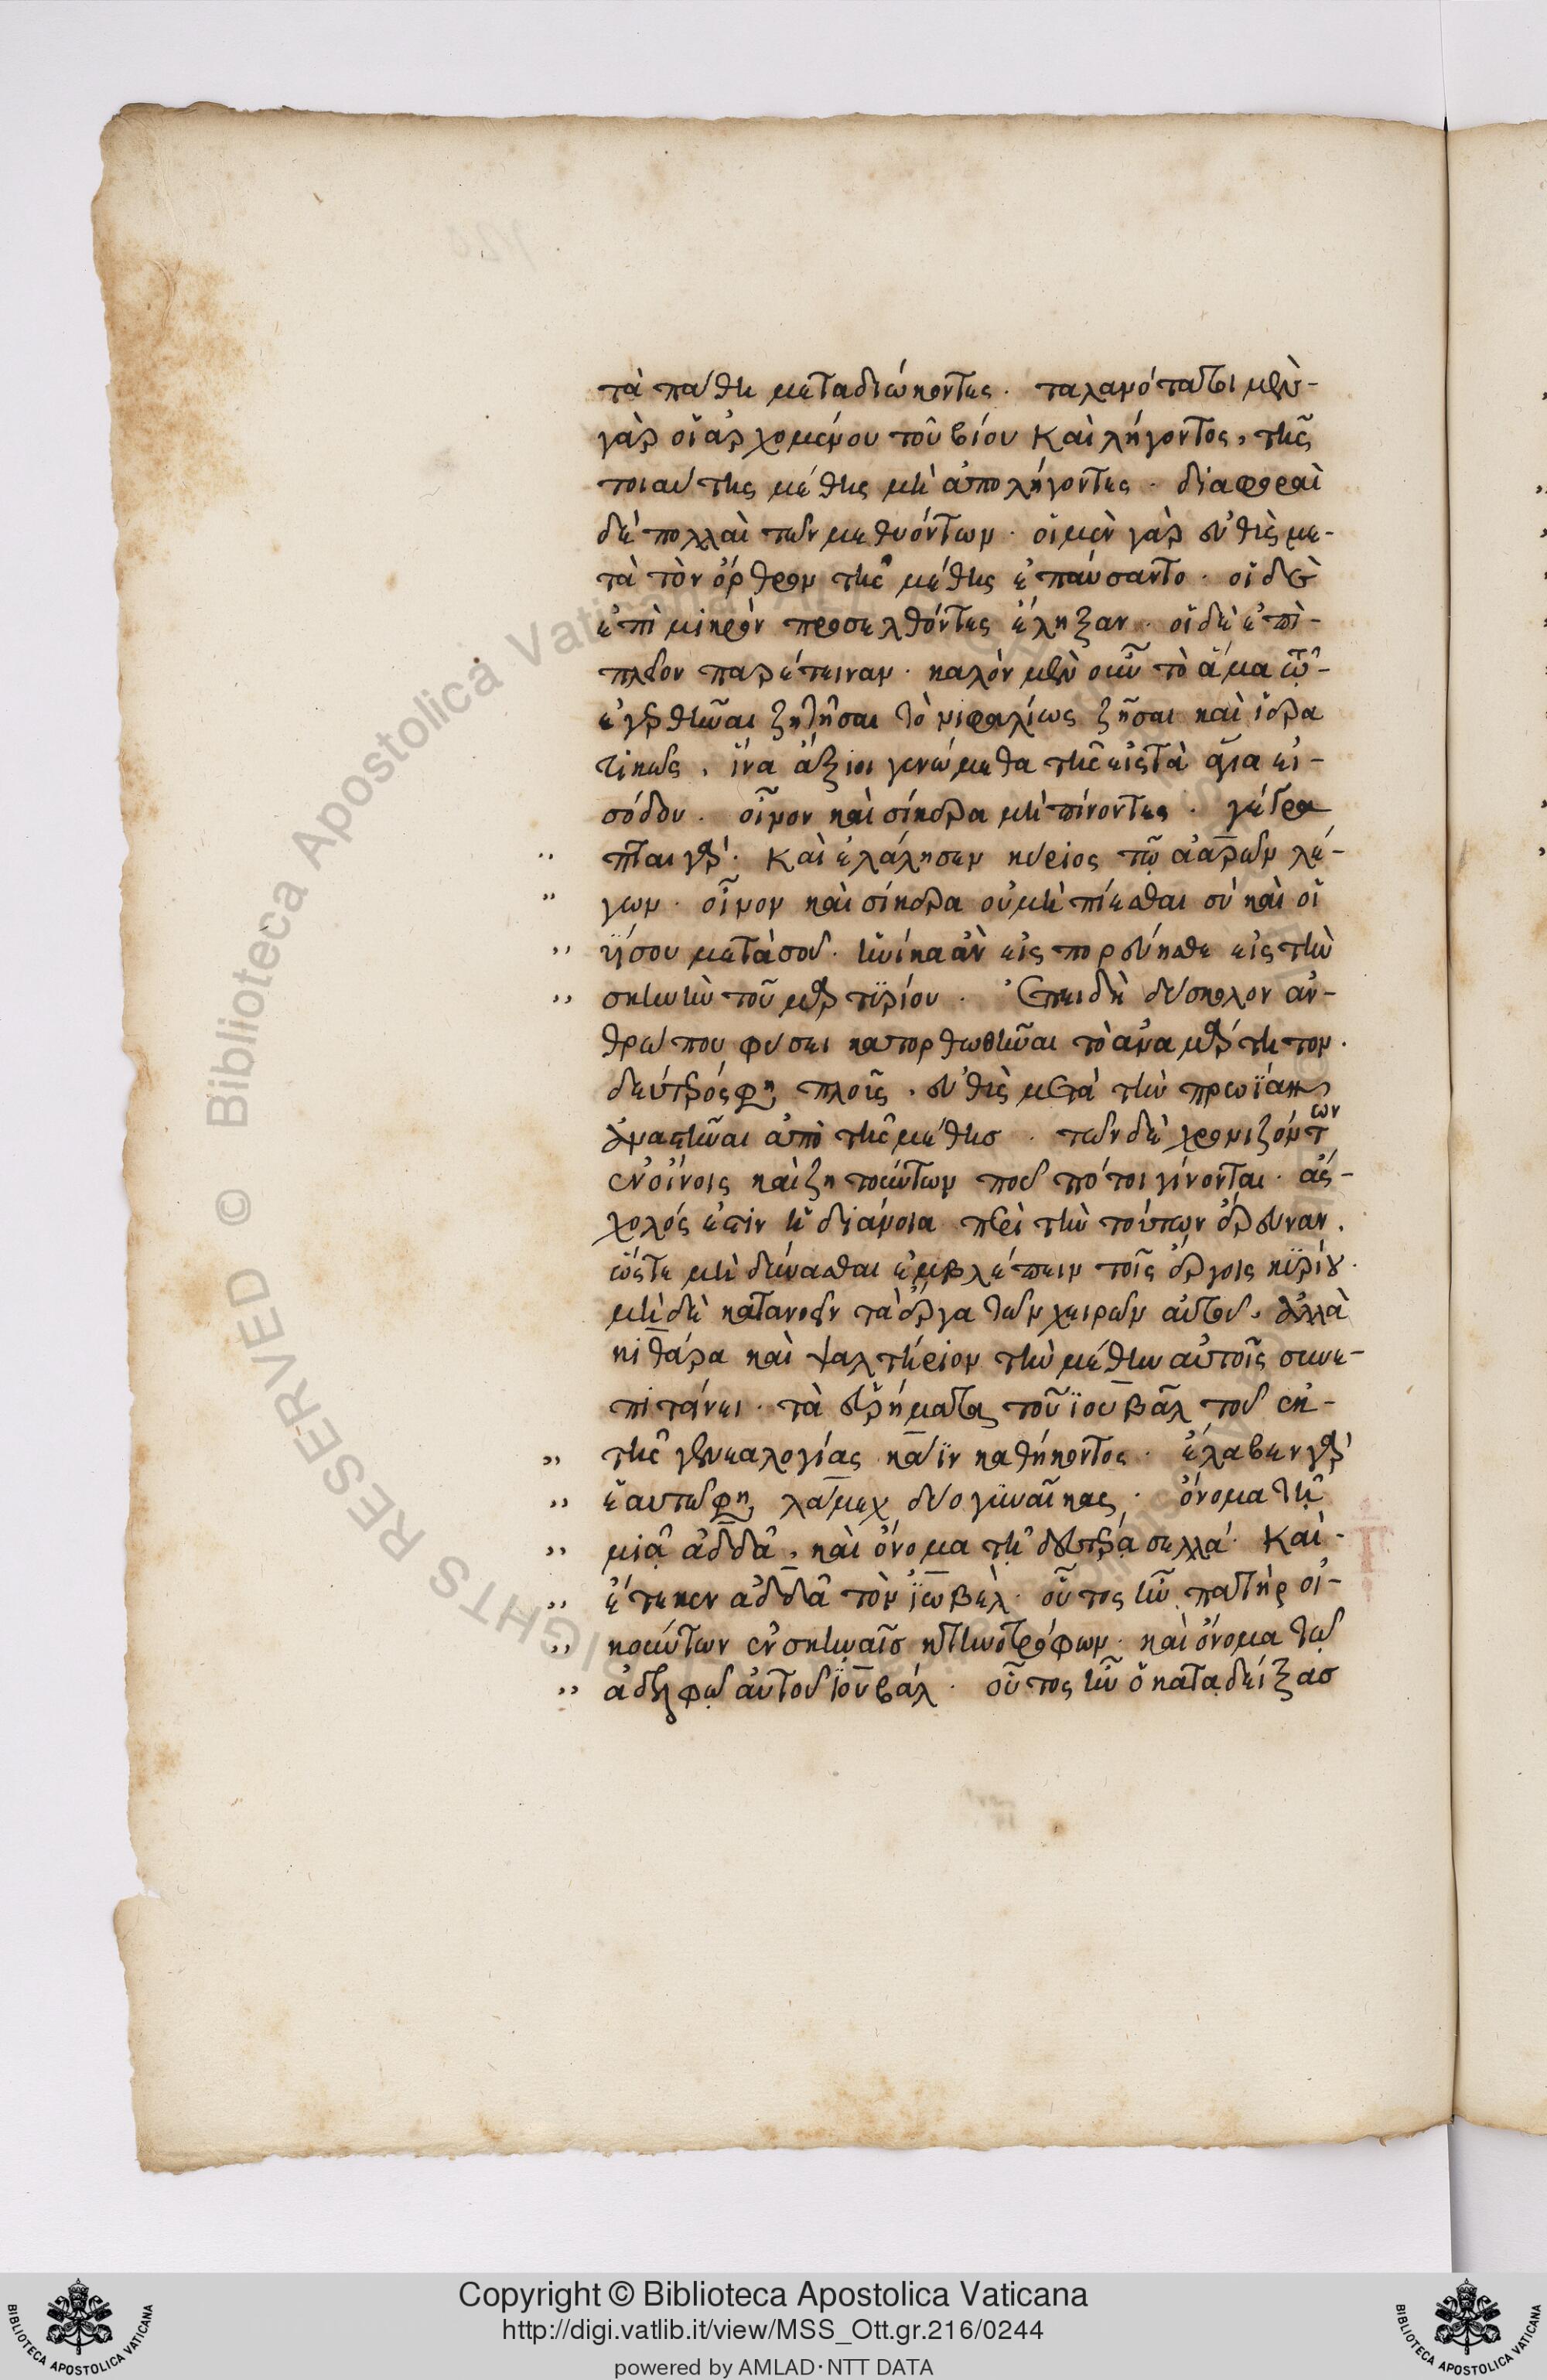 τὰ πάθη μεταδιώκοντες. ταλανότατοι μὲν-
γὰρ οἱ ἀρχομένου τοῦ βίου καὶ λήγοντος, τῆς
τοιαύτης μέθης μὴ ἀπολήγοντες. διαφοραὶ
δὲ πολλαὶ τῶν μεθυόντων. οἱ μὲν γὰρ εὐθὺς με-
τὰ τὸν ὄρθρον τῆς μέθης ἐπαύσαντο. οἱ δὲ
ἐπὶ μικρὸν προσελθόντες ἔληξαν. οἱ δὲ ἐπὶ-
πλεῖον παρέτειναν. καλὸν μὲν οὖν τὸ ἅμα τῷ-
ἐγερθῆναι ζητῆσαι τὸ νιφαλίως ζῆσαι καὶ ἱερα
τικῶς. ἵνα ἄξιοι γενώμεθα τῆς εἰς τὰ ἅγια εἰ-
σόδου. οἶνον καὶ σίκερα μὴ πίνοντες. γέγρα
πται γάρ. καὶ ἐλάλησεν κύριος τῷ ἀαρὼν λέ-
,, γων. οἶνον καὶ σίκερα οὐ μὴ πίεσθαι σὺ καὶ οἱ
,, ὑϊοί σου μετὰ σοῦ. ἡνίκα ἂν εἰς πορεύησθε εἰς τὴν
,, σκηνὴν τοῦ μαρτυρίου. Ἐπειδὴ δύσκολον ἀν-
θρώπου φύσει κατορθωθῆναι τὸ ἀναμάρτητον.
δεύτερός φησι πλοῦς. εὐθὺς μετὰ τὴν πρωΐαν
ἀναστῆναι ἀπὸ τῆς μέθης. τῶν δὲ χρονιζόντων
ἐν οἴνοις καὶ ζητούντων ποῦ πότοι γίνονται. ἄσ-
χολός ἐστιν ἡ διάνοια περὶ τὴν τούτων ἔρευναν.
ὥστε μὴ δύνασθαι ἐμβλέπειν τοῖς ἔργοις κυρίου.
μὴ δὲ κατανοεῖν τὰ ἔργα τῶν χειρῶν αὐτοῦ. ἀλλὰ
κιθάρα καὶ ψαλτήριον τὴν μέθην αὐτοῖς συνε-
πιτείνει. τὰ εὑρήματα τοῦ ϊουβὰλ τοῦ ἐκ-
,, τῆς γενεαλογίας κάϊν καθήκοντος. ἔλαβεν γὰρ
,, ἑαυτῷ φησι λάμεχ δύο γυναῖκας. ὄνομα τῇ
,, μιᾷ ἀδδᾶ, καὶ ὄνομα τῇ δευτέρᾳ σελλά. καὶ-
,, ἔτεκεν ἀδδᾶ τὸν ϊωβέλ. οὗτος ἦν πατὴρ οἰ-
,, κούντων ἐν σκηναῖς κτηνοτρόφων. καὶ ὄνομα τῷ
,, ἀδελφῷ αὐτοῦ ϊουβάλ. οὗτος ἦν ὁ καταδείξας
Copyright © Biblioteca Apostolica Vaticana
http://digi.vatlib.it/view/MSS_Ott.gr.216/0244
powered by AMLAD·NTT DATA
BIBLIOTECA APOSTOLICA VATICANA
BIBLIOTECA APOSTOLICA VATICANA